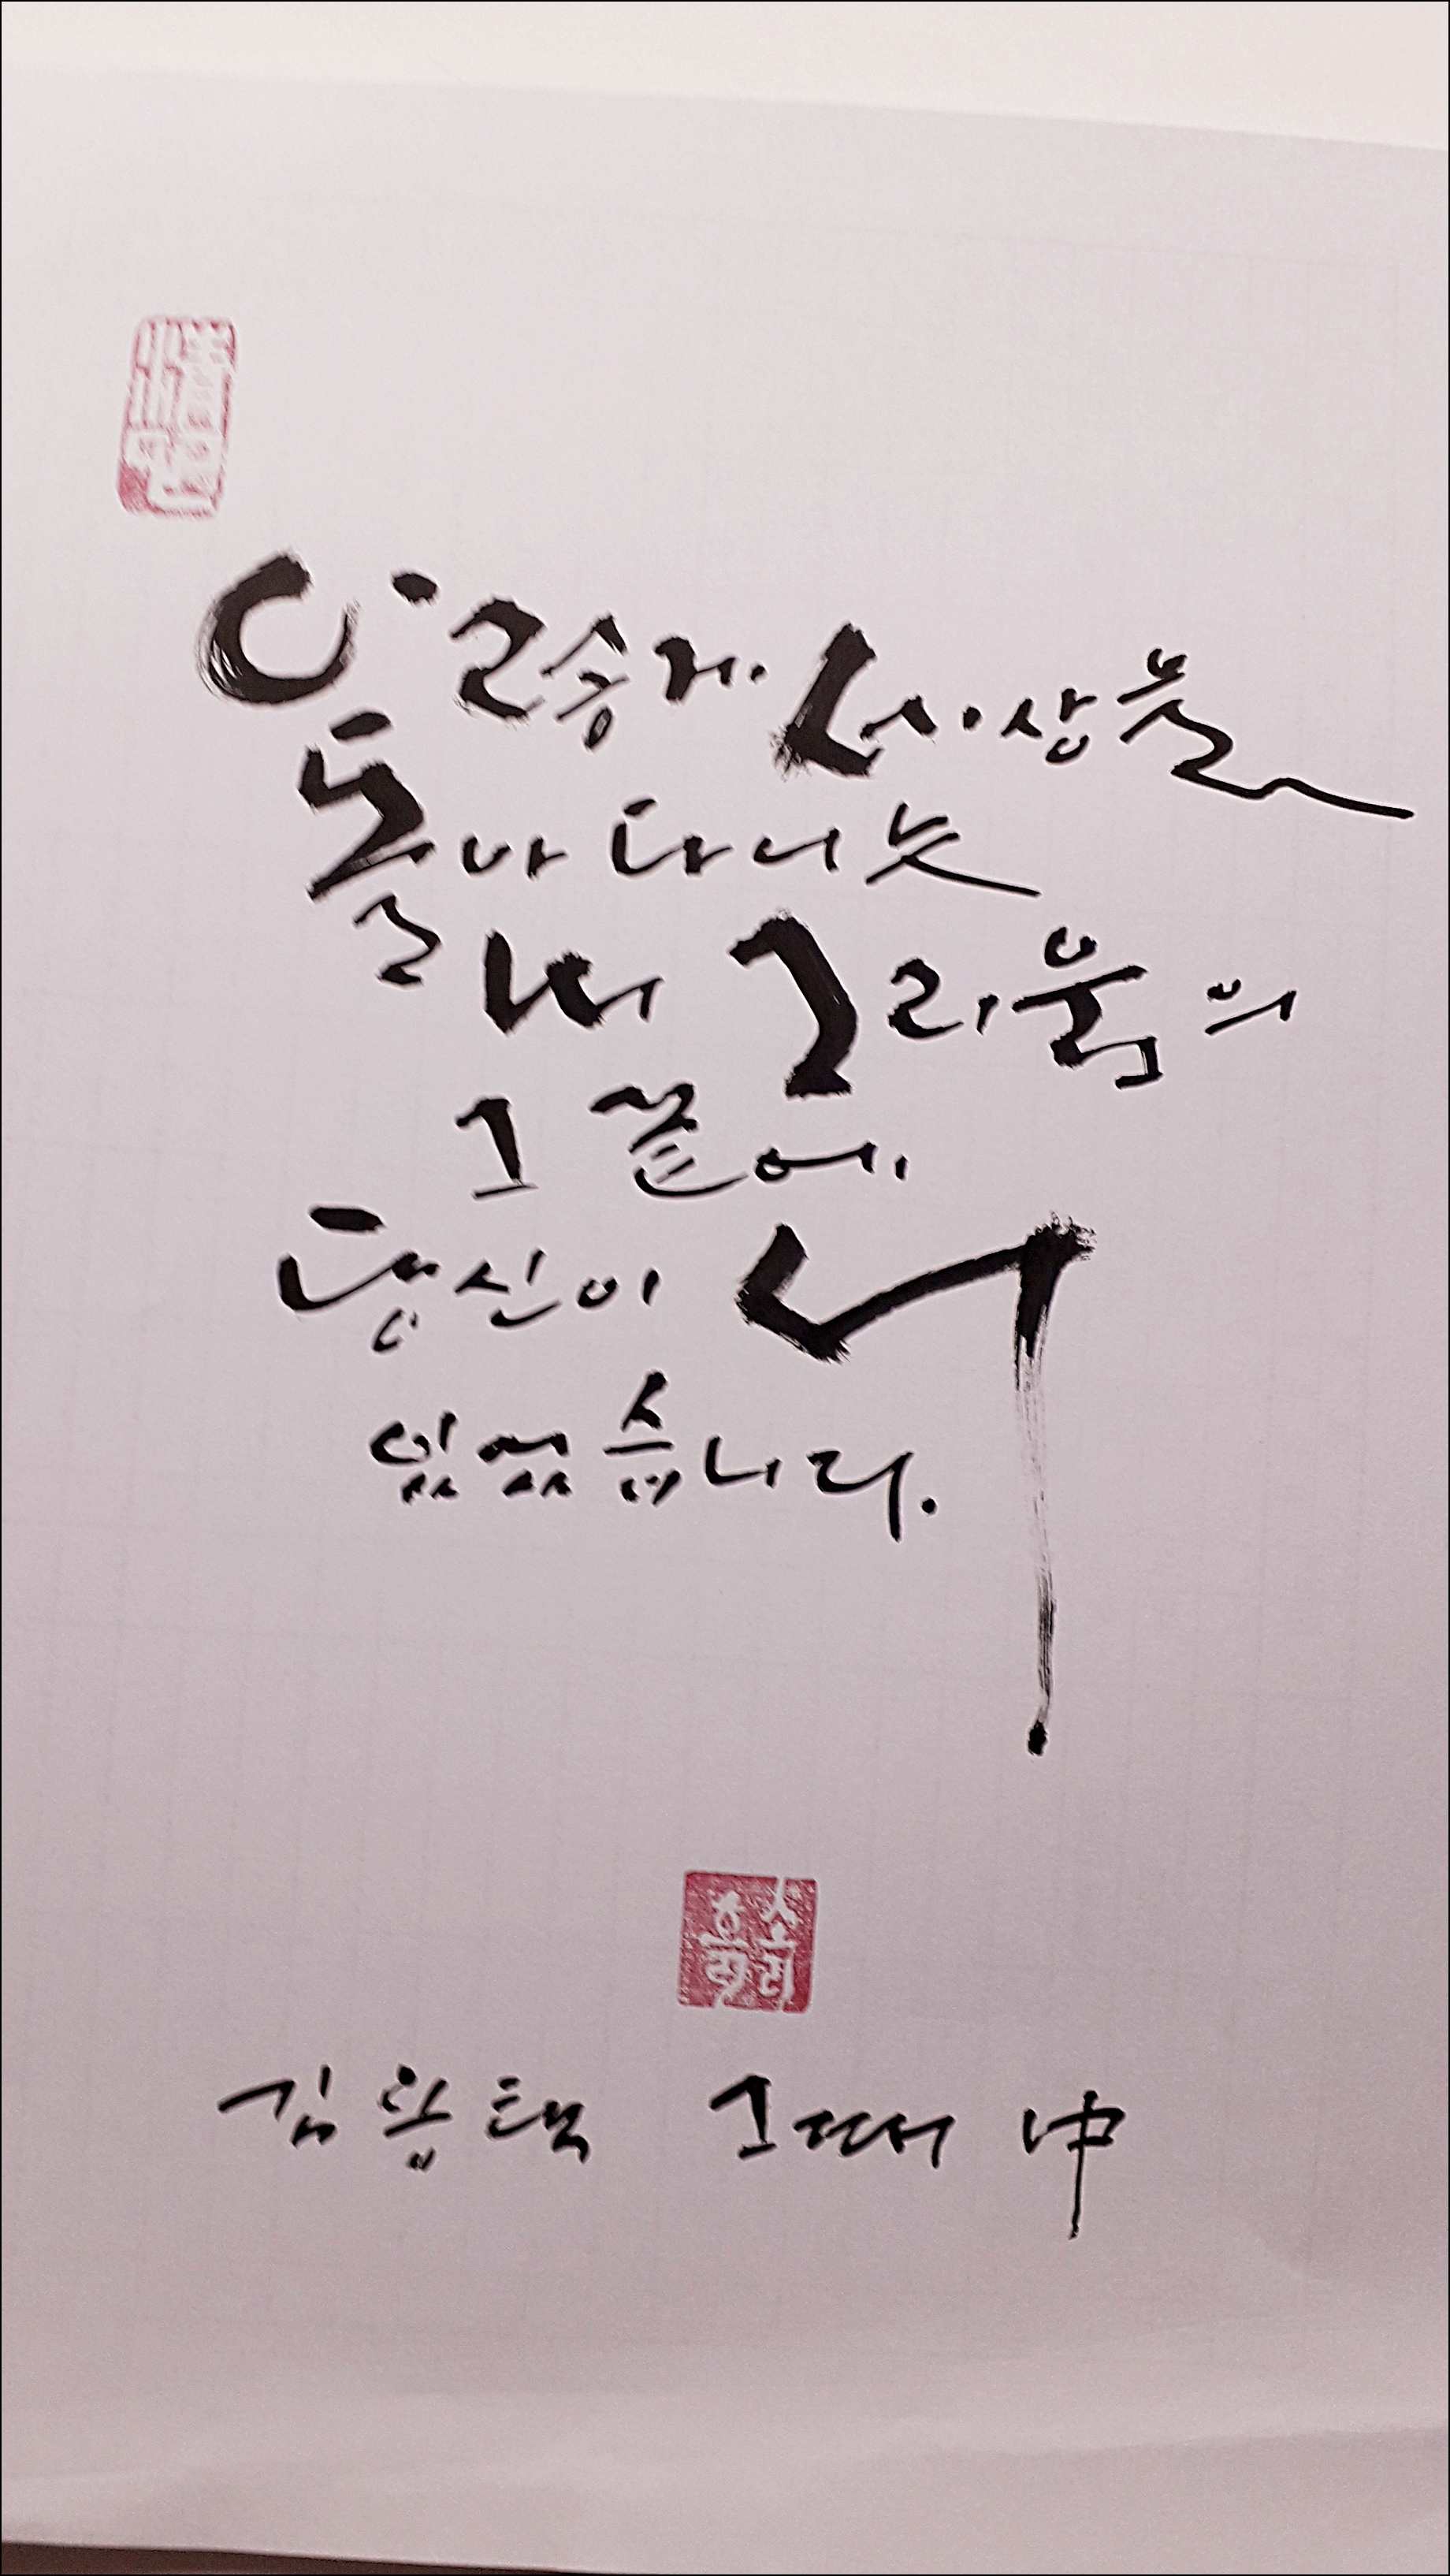 세상을
돌아다니는
내 그리움의
그 끝에
당신이 서
있었습니다.
김용택 그래서 中